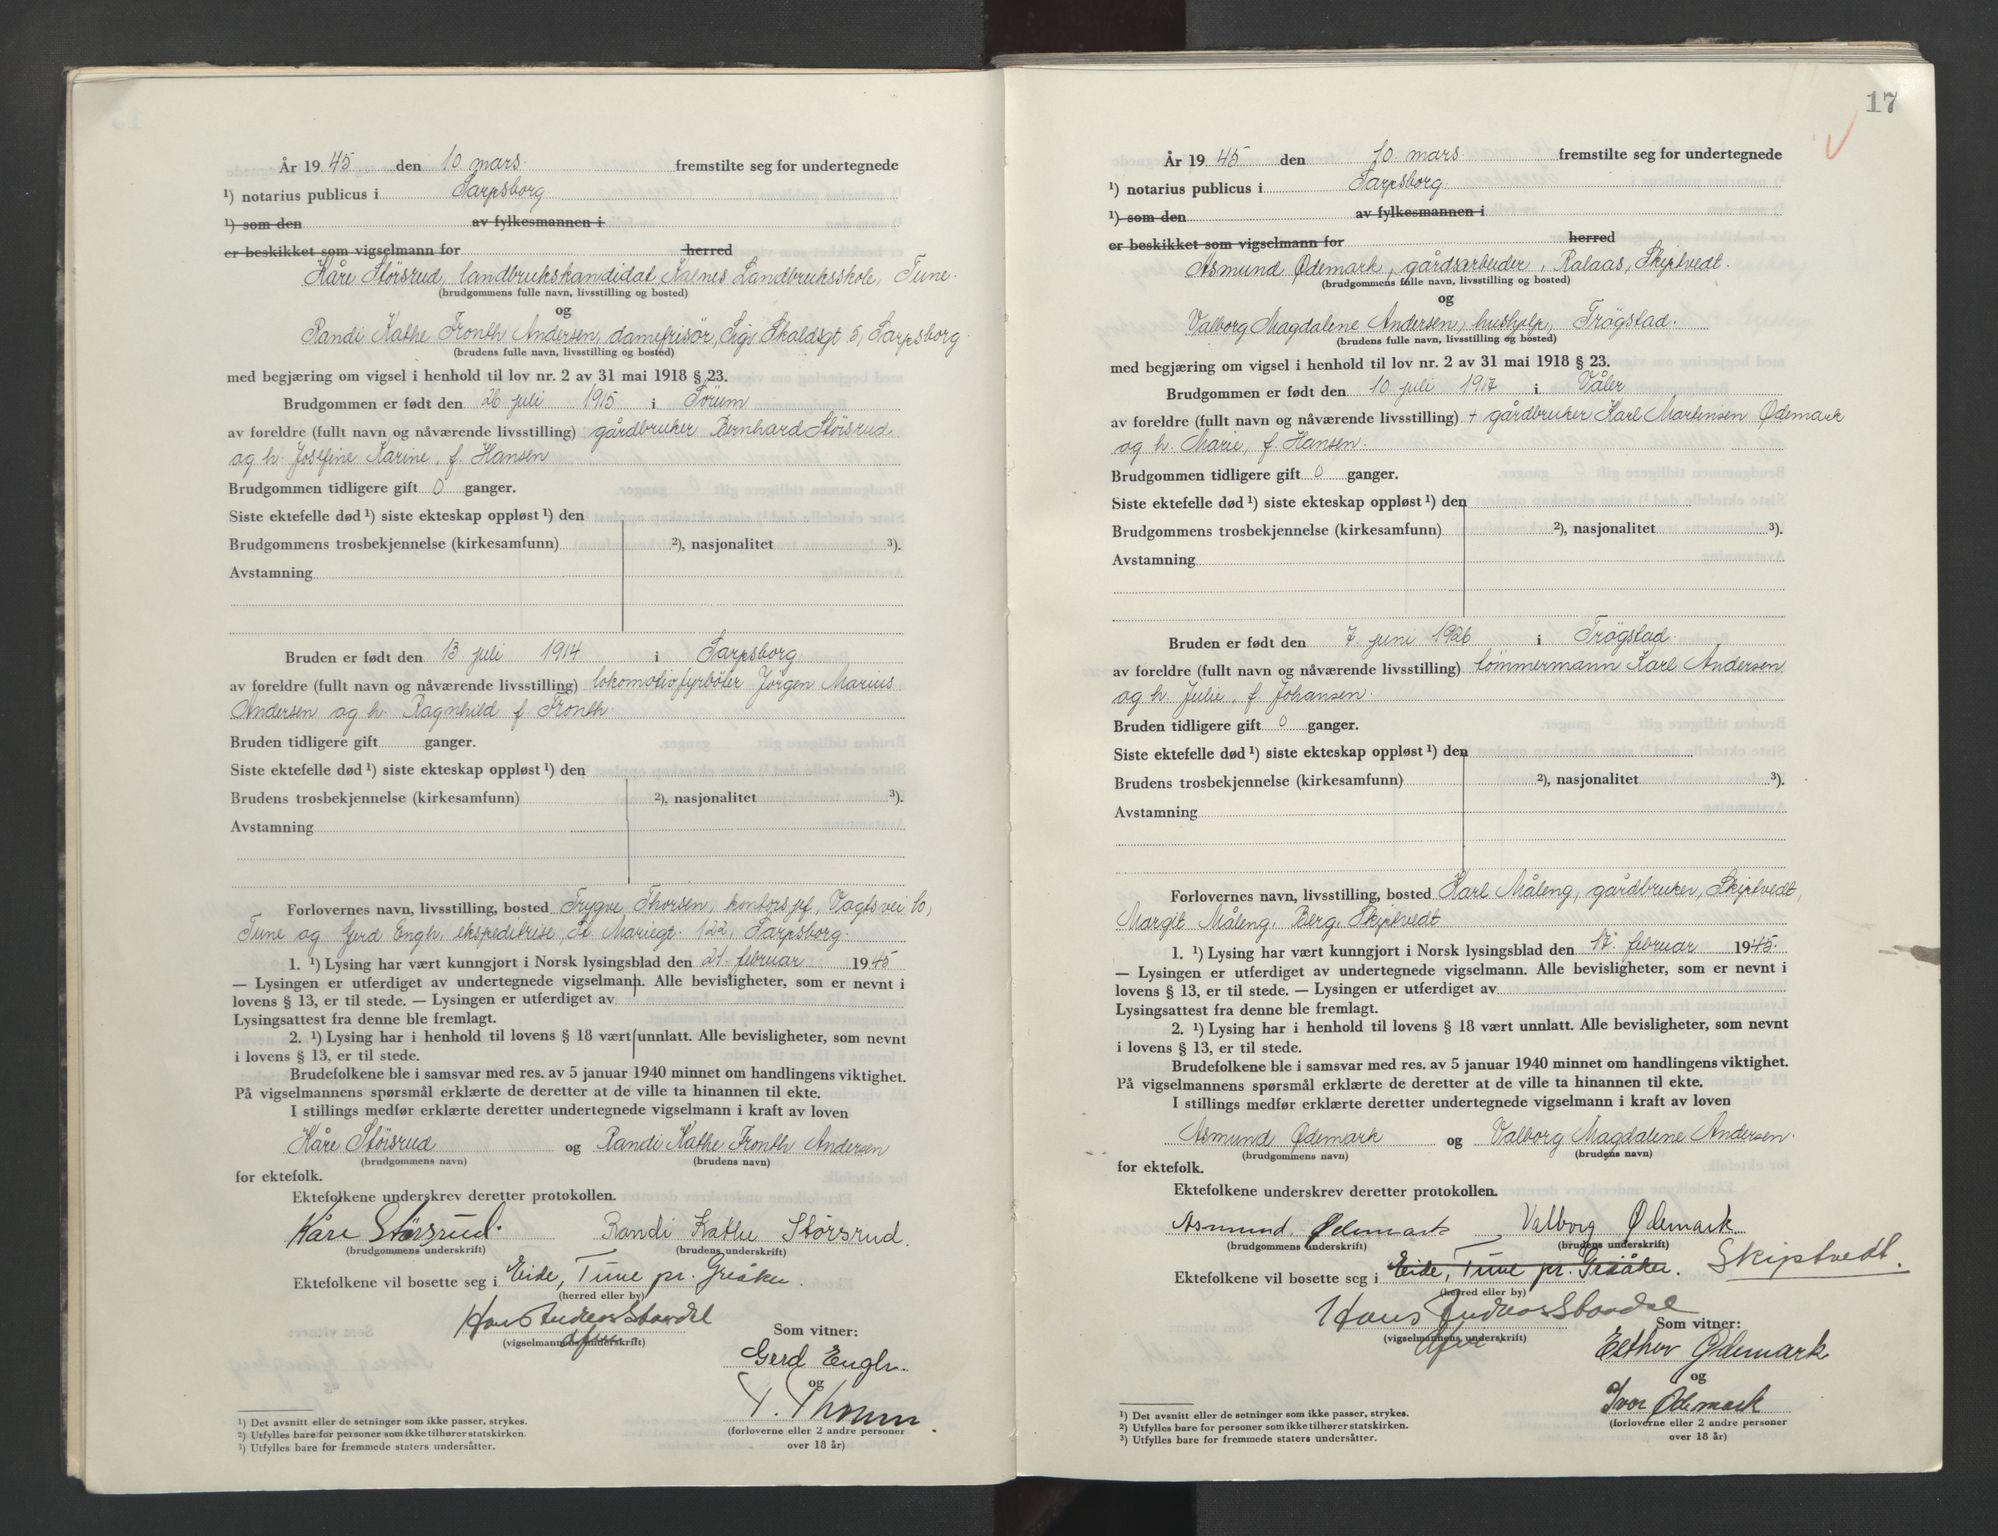 År 1945 den 10 mars. fremstilte seg for undertegnede
¹) notarius publicus i Sarpsborg
¹) som den av fylkesmannen i
er beskikket som vigselmann for herred
Kåre Störsrud, landbrukskandidat Kalnes Landbruksskole, Tune.
(brudgommens fulle navn, livsstilling og bosted)
og
Randi Kathe Fronth Andersen, damefrisør, Sigv. Skaldsgt 5, Sarpsborg.
(brudens fulle navn, livsstilling og bosted)
med begjæring om vigsel i henhold til lov nr. 2 av 31 mai 1918 § 23.
Brudgommen er født den 26 juli 1915 i Sörum
av foreldre (fullt navn og nåværende livsstilling) gårdbruker Bernhard Störsrud
og h. Josefine Karine, f. Hansen
Brudgommen tidligere gift 0 ganger.
Siste ektefelle død ¹) siste ekteskap oppløst ¹) den
Brudgommens trosbekjennelse (kirkesamfunn) ²), nasjonalitet ³).
Avstamning
Bruden er født den 13 juli 1914 i Sarpsborg
av foreldre (fullt navn og nåværende livsstilling) lokomotivfyrböter Jörgen Marius
Andersen og h. Ragnhild f. Fronth.
Bruden tidligere gift ganger.
Siste ektefelle død ¹) siste ekteskap oppløst ¹) den
Brudens trosbekjennelse (kirkesamfunn) ²), nasjonalitet ³).
Avstamning
Forlovernes navn, livsstilling, bosted Trygve Thorsen, kontorsjef, Vagts vei 10,
Tune og Gerd Engh, ekspeditrise, St. Mariegt. 122, Sarpsborg.
1. ¹) Lysing har vært kunngjort i Norsk lysingsblad den 21. februar 1945
— Lysingen er utferdiget av undertegnede vigselmann. Alle bevisligheter, som er nevnt i
lovens § 13, er til stede. — Lysingen er utferdiget av
Lysingsattest fra denne ble fremlagt.
2. ¹) Lysing har i henhold til lovens § 18 vært unnlatt. Alle bevisligheter, som nevnt
i lovens § 13, er til stede.
Brudefolkene ble i samsvar med res. av 5 januar 1940 minnet om handlingens viktighet.
På vigselmannens spørsmål erklærte de deretter at de ville ta hinannen til ekte.
I stillings medfør erklærte deretter undertegnede vigselmann i kraft av loven
Kåre Störsrud og Randi Kathe Fronth Andersen
(brudgommens navn) (brudens navn)
for ektefolk.
Ektefolkene underskrev deretter protokollen.
Kåre Störsrud. Randi Kathe Störsrud.
(brudgommens underskrift) (brudens underskrift)
Ektefolkene vil bosette seg i Eide, Tune pr. Greåker.
(herred eller by)
Hans Andreas Stordal
(vigselmannens underskrift)
Som vitner:
Gerd Engh.
og
T. Thorsen.
(forloverne eller 2 andre personer
over 18 år)
¹) Det avsnitt eller de setninger som ikke passer, strykes.
²) Utfylles bare for personer som ikke tilhører statskirken.
³) Utfylles bare for fremmede staters undersåtter.
17
År 1945 den 10. mars. fremstilte seg for undertegnede
¹) notarius publicus i Sarpsborg.
¹) som den av fylkesmannen i
er beskikket som vigselmann for herred
Asmund Ødemark, gårdsarbeider, Ralaas, Skiptvedt.
(brudgommens fulle navn, livsstilling og bosted)
og
Valborg Magdalene Andersen, hushjelp, Trögstad.
(brudens fulle navn, livsstilling og bosted)
med begjæring om vigsel i henhold til lov nr. 2 av 31 mai 1918 § 23.
Brudgommen er født den 10 juli 1917 i Våler
av foreldre (fullt navn og nåværende livsstilling) + gårdbruker Karl Martinsen Ødemark
og h. Marie, f. Hansen.
Brudgommen tidligere gift 0 ganger.
Siste ektefelle død ¹) siste ekteskap oppløst ¹) den
Brudgommens trosbekjennelse (kirkesamfunn) ²), nasjonalitet ³).
Avstamning
Bruden er født den 7. juni 1926 i Trögstad.
av foreldre (fullt navn og nåværende livsstilling) tömmermann Karl Andersen
og h. Julie, f. Johansen.
Bruden tidligere gift 0 ganger.
Siste ektefelle død ¹) siste ekteskap oppløst ¹) den
Brudens trosbekjennelse (kirkesamfunn) ²), nasjonalitet ³).
Avstamning
Forlovernes navn, livsstilling, bosted Karl Måleng, gårdbruker, Skiptvedt,
Margit Måleng, Berg, Skiptvedt
1. ¹) Lysing har vært kunngjort i Norsk lysingsblad den 17. februar 1945.
— Lysingen er utferdiget av undertegnede vigselmann. Alle bevisligheter, som er nevnt i
lovens § 13, er til stede. — Lysingen er utferdiget av
Lysingsattest fra denne ble fremlagt.
2. ¹) Lysing har i henhold til lovens § 18 vært unnlatt. Alle bevisligheter, som nevnt
i lovens § 13, er til stede.
Brudefolkene ble i samsvar med res. av 5 januar 1940 minnet om handlingens viktighet.
På vigselmannens spørsmål erklærte de deretter at de ville ta hinannen til ekte.
I stillings medfør erklærte deretter undertegnede vigselmann i kraft av loven
Asmund Ødemark og Valborg Magdalene Andersen.
(brudgommens navn) (brudens navn)
for ektefolk.
Ektefolkene underskrev deretter protokollen.
Asmund Ødemark Valborg Ødemark
(brudgommens underskrift) (brudens underskrift)
Ektefolkene vil bosette seg i Eide, Tune pr. Greåker. Skiptvedt.
(herred eller by)
Hans Andreas Stordal
(vigselmannens underskrift)
Som vitner:
Esther Ødemark
og
Ivar Ødemark
(forloverne eller 2 andre personer
over 18 år)
¹) Det avsnitt eller de setninger som ikke passer, strykes.
²) Utfylles bare for personer som ikke tilhører statskirken.
³) Utfylles bare for fremmede staters undersåtter.